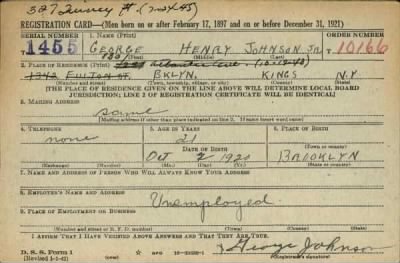 327 Quincy St. (2-23-45)
REGISTRATION CARD—(Men born on or after February 17, 1897 and on or before December 31, 1921)
SERIAL NUMBER 1. NAME (Print) ORDER NUMBER
1455 GEORGE HENRY JOHNSON JR 10166
(First) (Middle) (Last)
2. PLACE OF RESIDENCE (Print) Atlantic Ave.
1342 FULTON ST. BKLYN. KINGS N.Y.
(Number and street) (Town, township, village, or city) (County) (State)
[THE PLACE OF RESIDENCE GIVEN ON THE LINE ABOVE WILL DETERMINE LOCAL BOARD
JURISDICTION; LINE 2 OF REGISTRATION CERTIFICATE WILL BE IDENTICAL]
3. MAILING ADDRESS
Same
[Mailing address if other than place indicated on line 2. If same insert word same]
4. TELEPHONE 5. AGE IN YEARS 6. PLACE OF BIRTH
none 21
DATE OF BIRTH (Town or county)
Oct 2 1920 BROOKLYN
(Exchange) (Number) (Mo.) (Day) (Yr.) (State or country)
7. NAME AND ADDRESS OF PERSON WHO WILL ALWAYS KNOW YOUR ADDRESS
8. EMPLOYER'S NAME AND ADDRESS
Unemployed
9. PLACE OF EMPLOYMENT OR BUSINESS
(Number and street or R. F. D. number) (Town) (County) (State)
I AFFIRM THAT I HAVE VERIFIED ABOVE ANSWERS AND THAT THEY ARE TRUE.
D. S. S. Form 1
(Revised 1-1-42) (over)
George Johnson